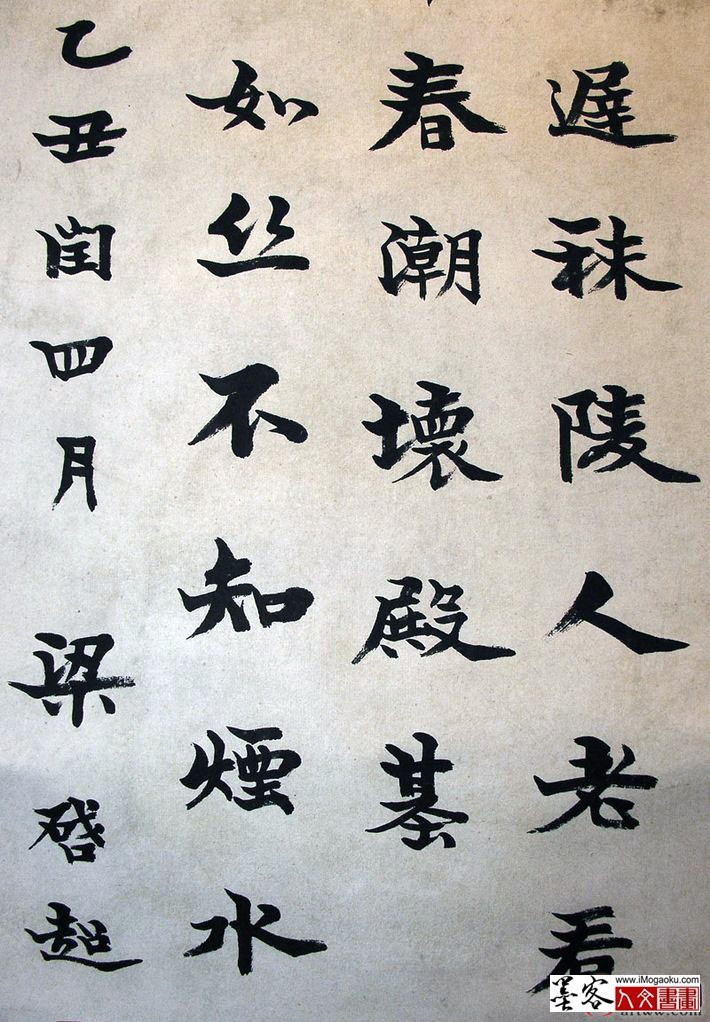 遲秣陵人老看
春潮壞殿基
如丝不知煙水
乙丑闰四月 梁啓超
墨客
www.iMogaoku.com
人文書畫
artww.com